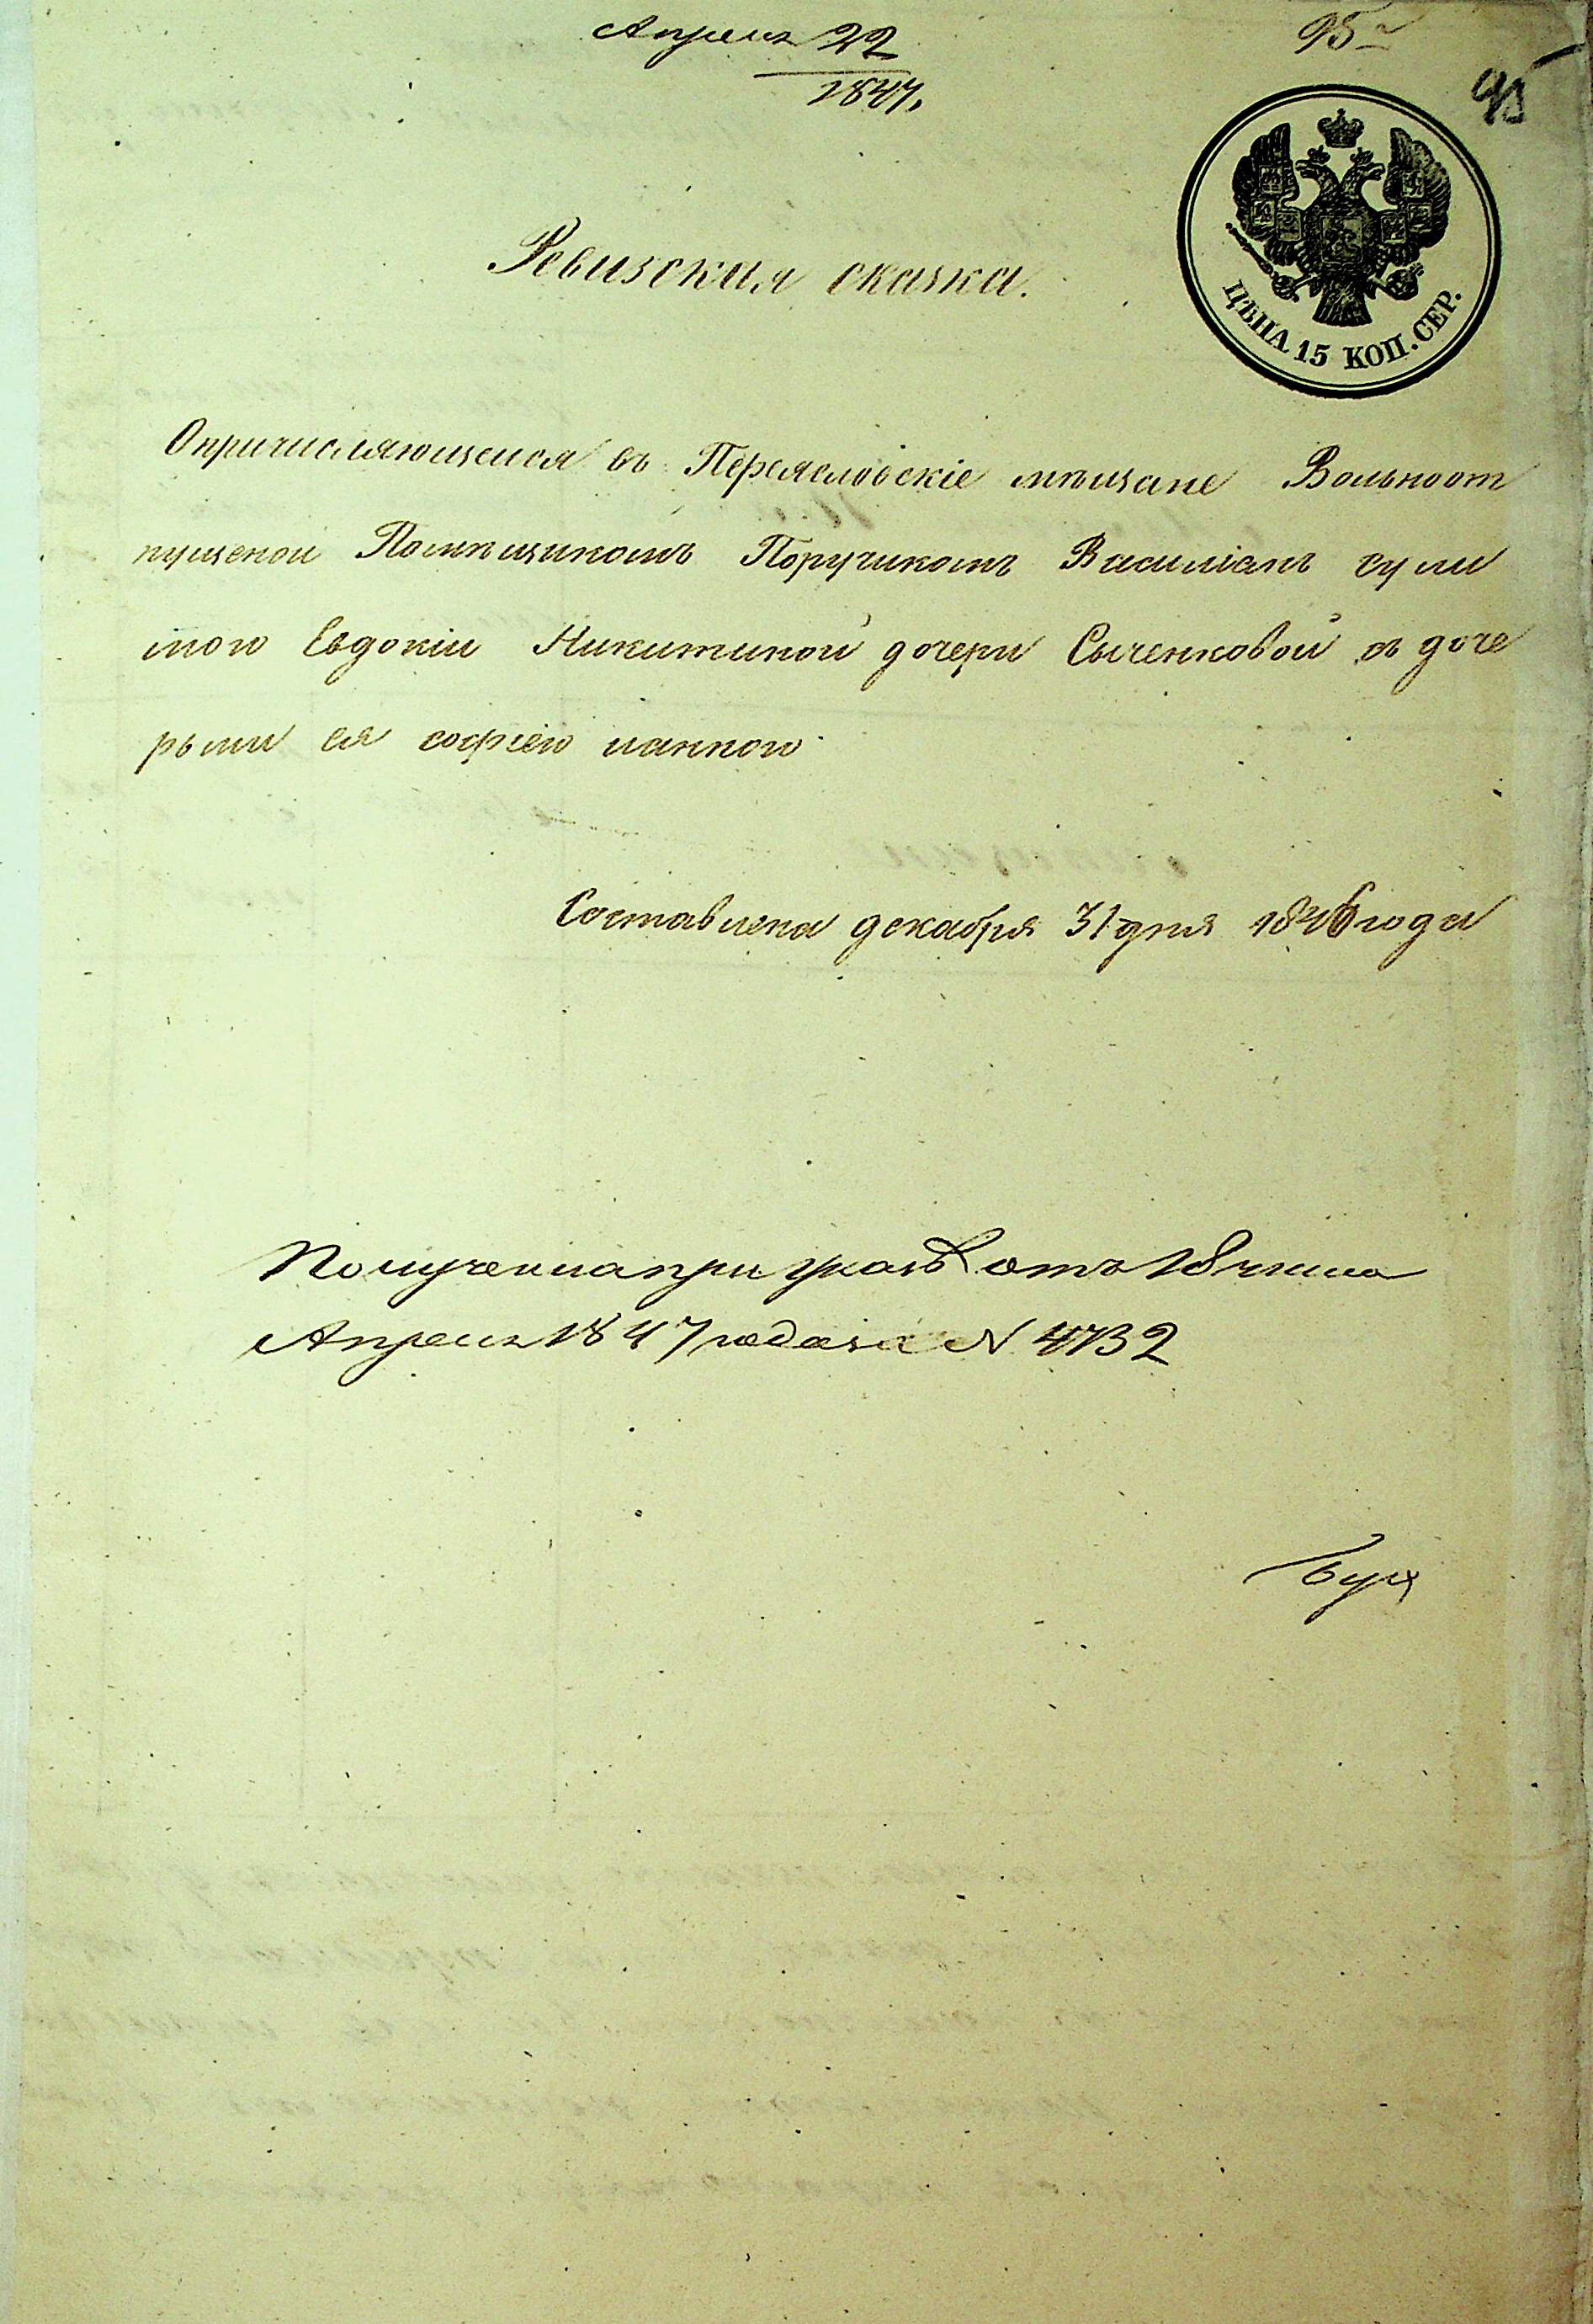 Апреля 22
1847.
95
95
ЦѢНА 15 КОП. СЕР.
Ревизская сказка.
Опричисляющейся въ Переясловскіе мѣщане Вольноот
пущеной Помѣщикомъ Поручикомъ Василіамъ сули
мою Евдокіи Никитиной дочери Сыченковой съ доче
рьми ея софіею ианною
Составлена декабря 31 дня 1846 года
Получена при указѣ отъ 18 числа
Апреля 1847 года за N 4732